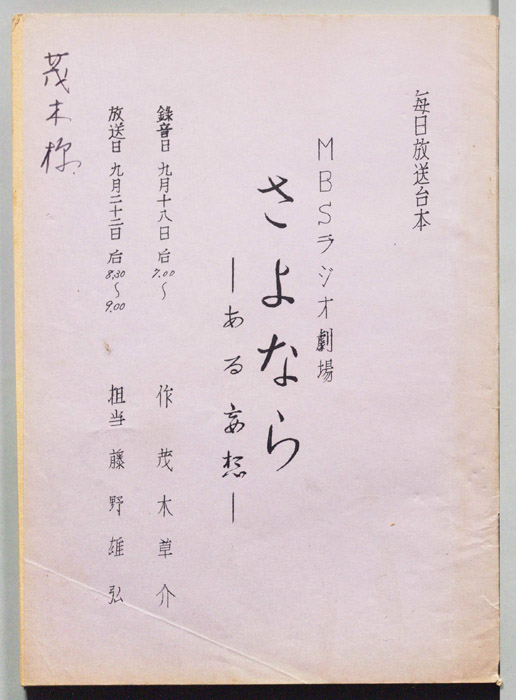 毎日放送台本
MBSラジオ劇場
さよなら
―ある妄想―
録音日 九月十八日 后7.00〜
作 茂木草介
放送日 九月二十二日 后8.30〜9.00
担当 藤野雄弘
茂木様